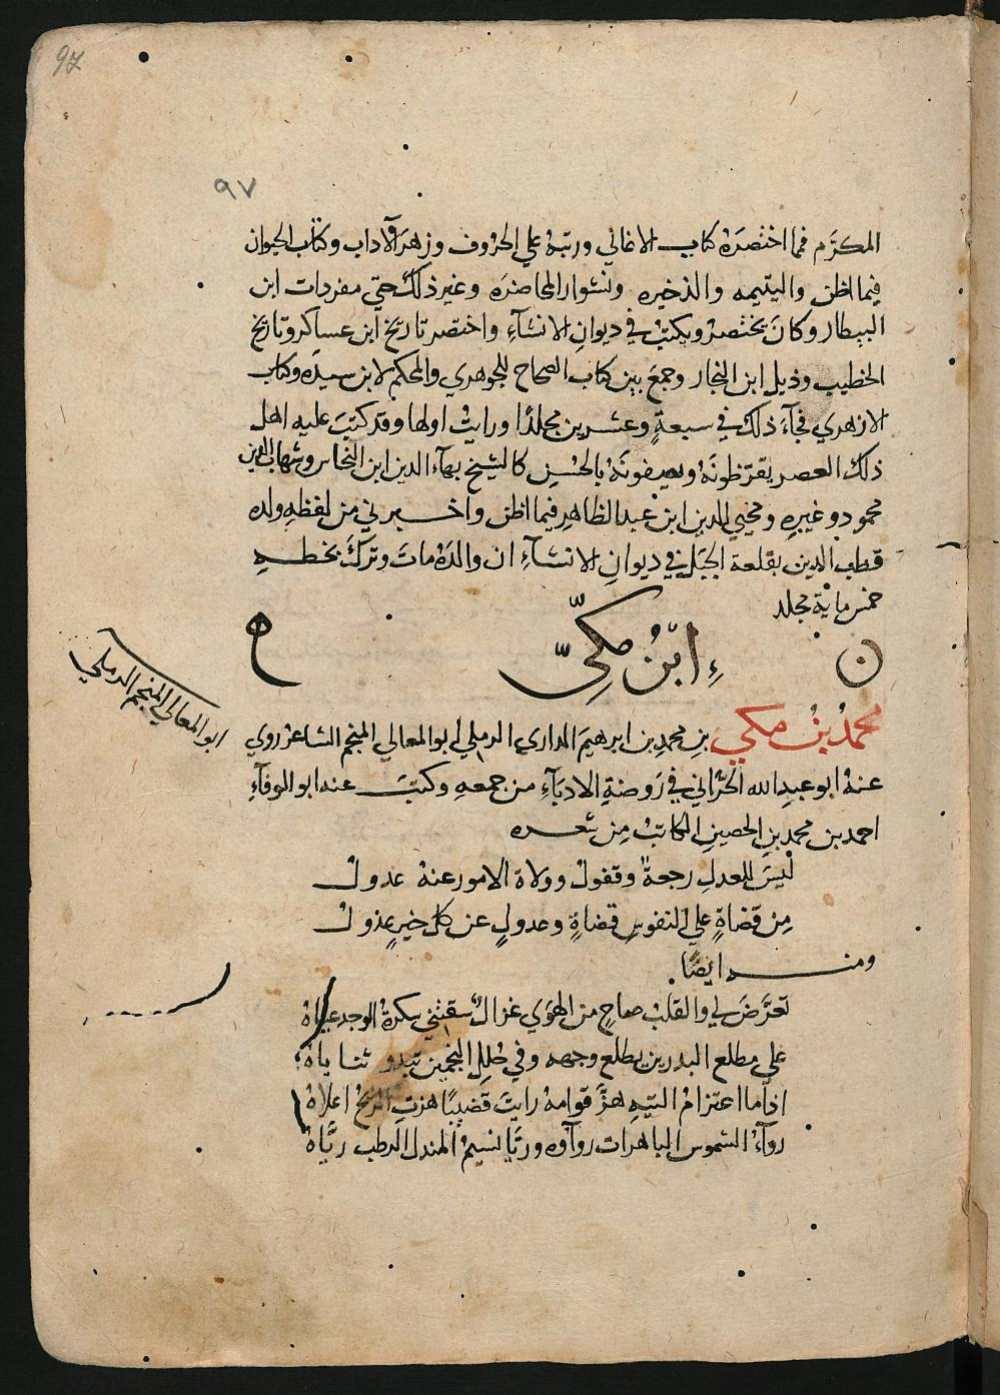 97
٩٧
المكرَّم فمما اختصرَهُ كتاب الاغاني ورتبهُ علي الحروف وزهرَ الآداب وكتاب الحيوان
فيما اظن واليتيمه والذخيره ونشوار المحاضرَه وغير ذلك حتي مفردات ابن
البيطار وكانَ يختصرُ ويكتبُ في ديوانِ الانشآءِ واختصر تاريخ ابن عساكر وتاريخ
الخطيب وذيل ابن النجار وجمعَ بين كتاب الصحاح للجوهري والمحكم لابن سيدَه وكتاب
الازهري فجآءَ ذلك في سبعةٍ وعشرين مجلدًا ورايتُ اولها وقد كتبَ عليه اهل
ذلك العصر يقرّظونَهُ ويصفونَهُ بالحُسْنِ كالشيخ بهآء الدين ابن النحاس وشهاب الدين
محمود وغيرِهِ ومحيي الدين ابن عبد الظاهِرِ فيما اظن واخبرني من لفظهِ ولده
قطب الدين بقلعة الجَبَل في ديوانِ الانشآءِ ان والدَهُ ماتَ وتركَ بخطهِ
خمس ماية مجلد
ابنُ مكيّ
ابو المعالي المنجم الرملي
محمدُ بنُ مكي بنِ محمدِ بن ابرهيمَ الداري الرملي ابو المعالي المنجم الشاعر روي
عنهُ ابو عبدِ الله الحرَّاني في رَوضةِ الادبَآءِ من جمعهِ وكتبَ عنه ابو الوفآءِ
احمد بن محمد بنِ الحصينِ الكاتبُ مِن شعره
ليسَ للعدلِ رجعةٌ وقفولُ وولاة الامور عنهُ عدولُ
مِن قضاةٍ علي النفوسِ قضاةٍ وعدولٍ عن كل خيرٍ عدولُ
ومنه ايضًا
تعرَّضَ لي والقلبُ صاحٍ من الهوَي غزالٌ سقتني سكرةُ الوجد عيناهُ
علي مطلع البدرين يطلع وجهه وفي طلل النجمين تبدو ثناياهُ
اذا ما اعتزامُ التيهِ هزَّ قوامهُ رايتَ قضيبًا هزتِ الريحُ اعلاهُ
روآءُ الشموس الباهرات روآؤه وريَّا نسيمُ المندل الرطب ريَّاهُ